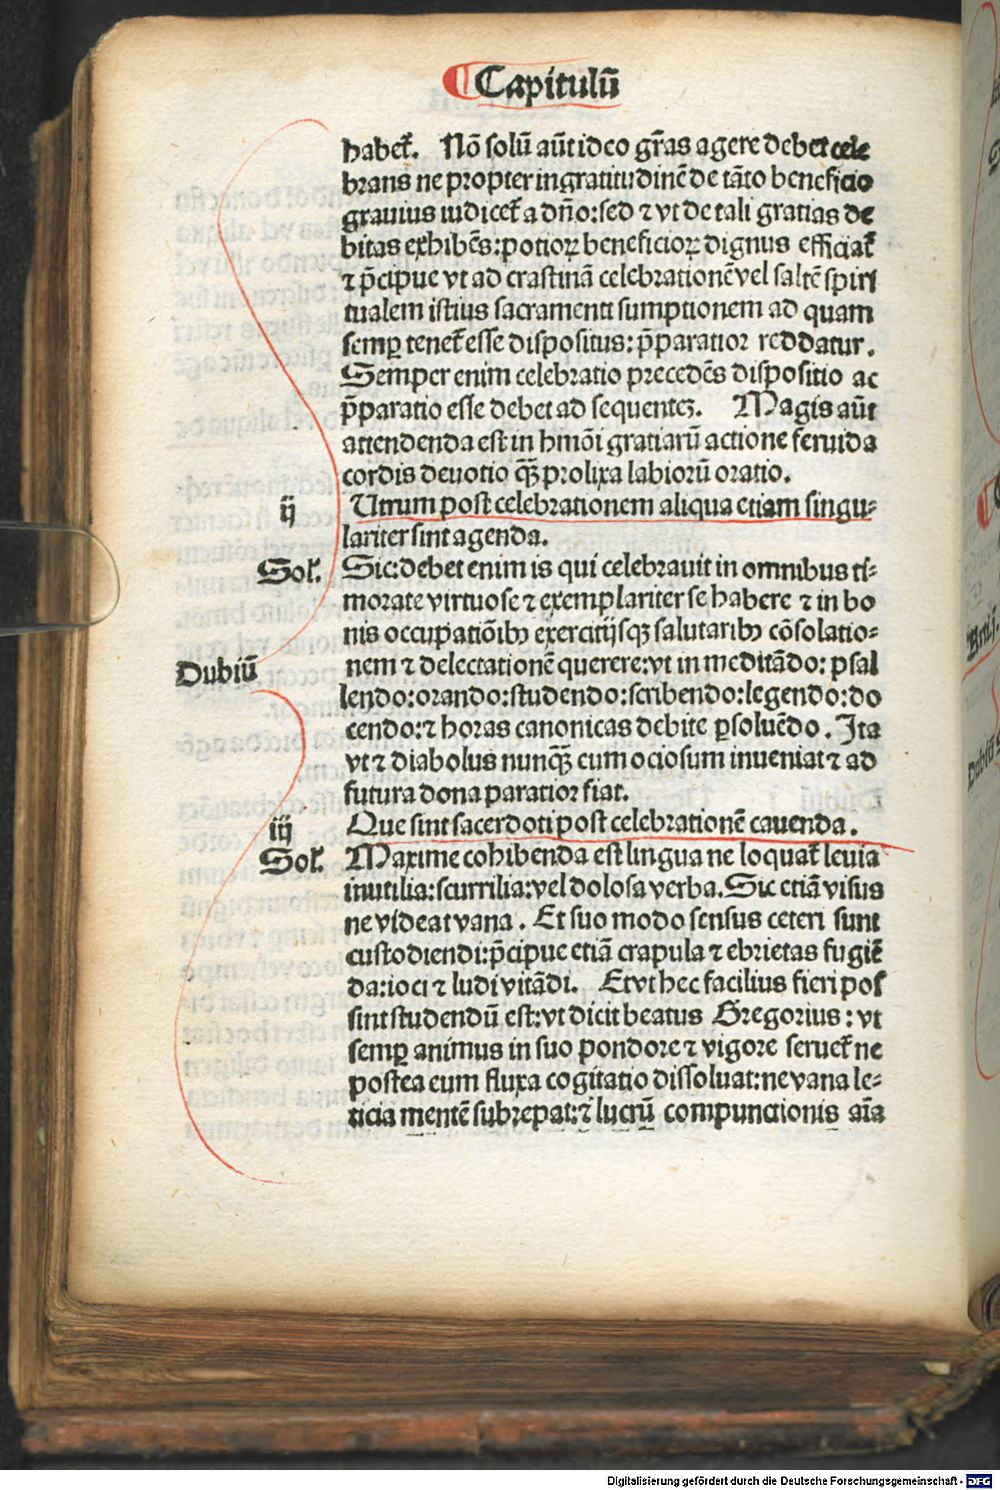 ¶Capitulū
habet᷑. Nō solū aūt ideo gr̄as agere debet cele
brans ne propter ingratitudinē de tāto beneficio
grauius iudicet᷑ a dn̄o:sed ⁊ vt de tali gratias de
bitas exhibēs:potioꝝ beneficioꝝ dignus efficiat᷑
⁊ p̄cipue vt ad crastinā celebrationē vel saltē spiri
tualem istius sacramenti sumptionem ad quam
semꝑ tenet᷑ esse dispositus: p̄paratior reddatur.
Semper enim celebratio precedēs dispositio ac
p̄paratio esse debet ad sequenteꝫ. Magis aūt
attendenda est in hmōi gratiarū actione feruida
cordis deuotio qꝫ̄ prolixa labiorū oratio.
ij Utrum post celebrationem aliqua etiam singu⸗
lariter sint agenda.
Sol᷑. Sic:debet enim is qui celebrauit in omnibus ti⸗
morate virtuose ⁊ exemplariter se habere ⁊ in bo
nis occupatiōibꝰ exercitijsqꝫ salutaribꝰ cōsolatio⸗
nem ⁊ delectationē querere:vt in meditādo: psal
Dubiū
lendo:orando:studendo:scribendo:legendo:do
cendo:⁊ horas canonicas debite ꝑsoluēdo. Ita
vt ⁊ diabolus nunqꝫ̄ eum ociosum inueniat ⁊ ad
futura dona paratior fiat.
iij Que sint sacerdoti post celebrationē cauenda.
Sol᷑. Maxime cohibenda est lingua ne loquat᷑ leuia
inutilia:scurrilia:vel dolosa verba. Sic etiā visus
ne videat vana. Et suo modo sensus ceteri sunt
custodiendi:p̄cipue etiā crapula ⁊ ebrietas fugiē
da:ioci ⁊ ludi vitādi. Et vt hec facilius fieri pos
sint studendū est:vt dicit beatus Gregorius: vt
semꝑ animus in suo pondore ⁊ vigore seruet᷑ ne
postea eum fluxa cogitatio dissoluat:ne vana le⸗
ticia mentē subrepat:⁊ lucrū compunctionis aīa
Digitalisierung gefördert durch die Deutsche Forschungsgemeinschaft - DFG